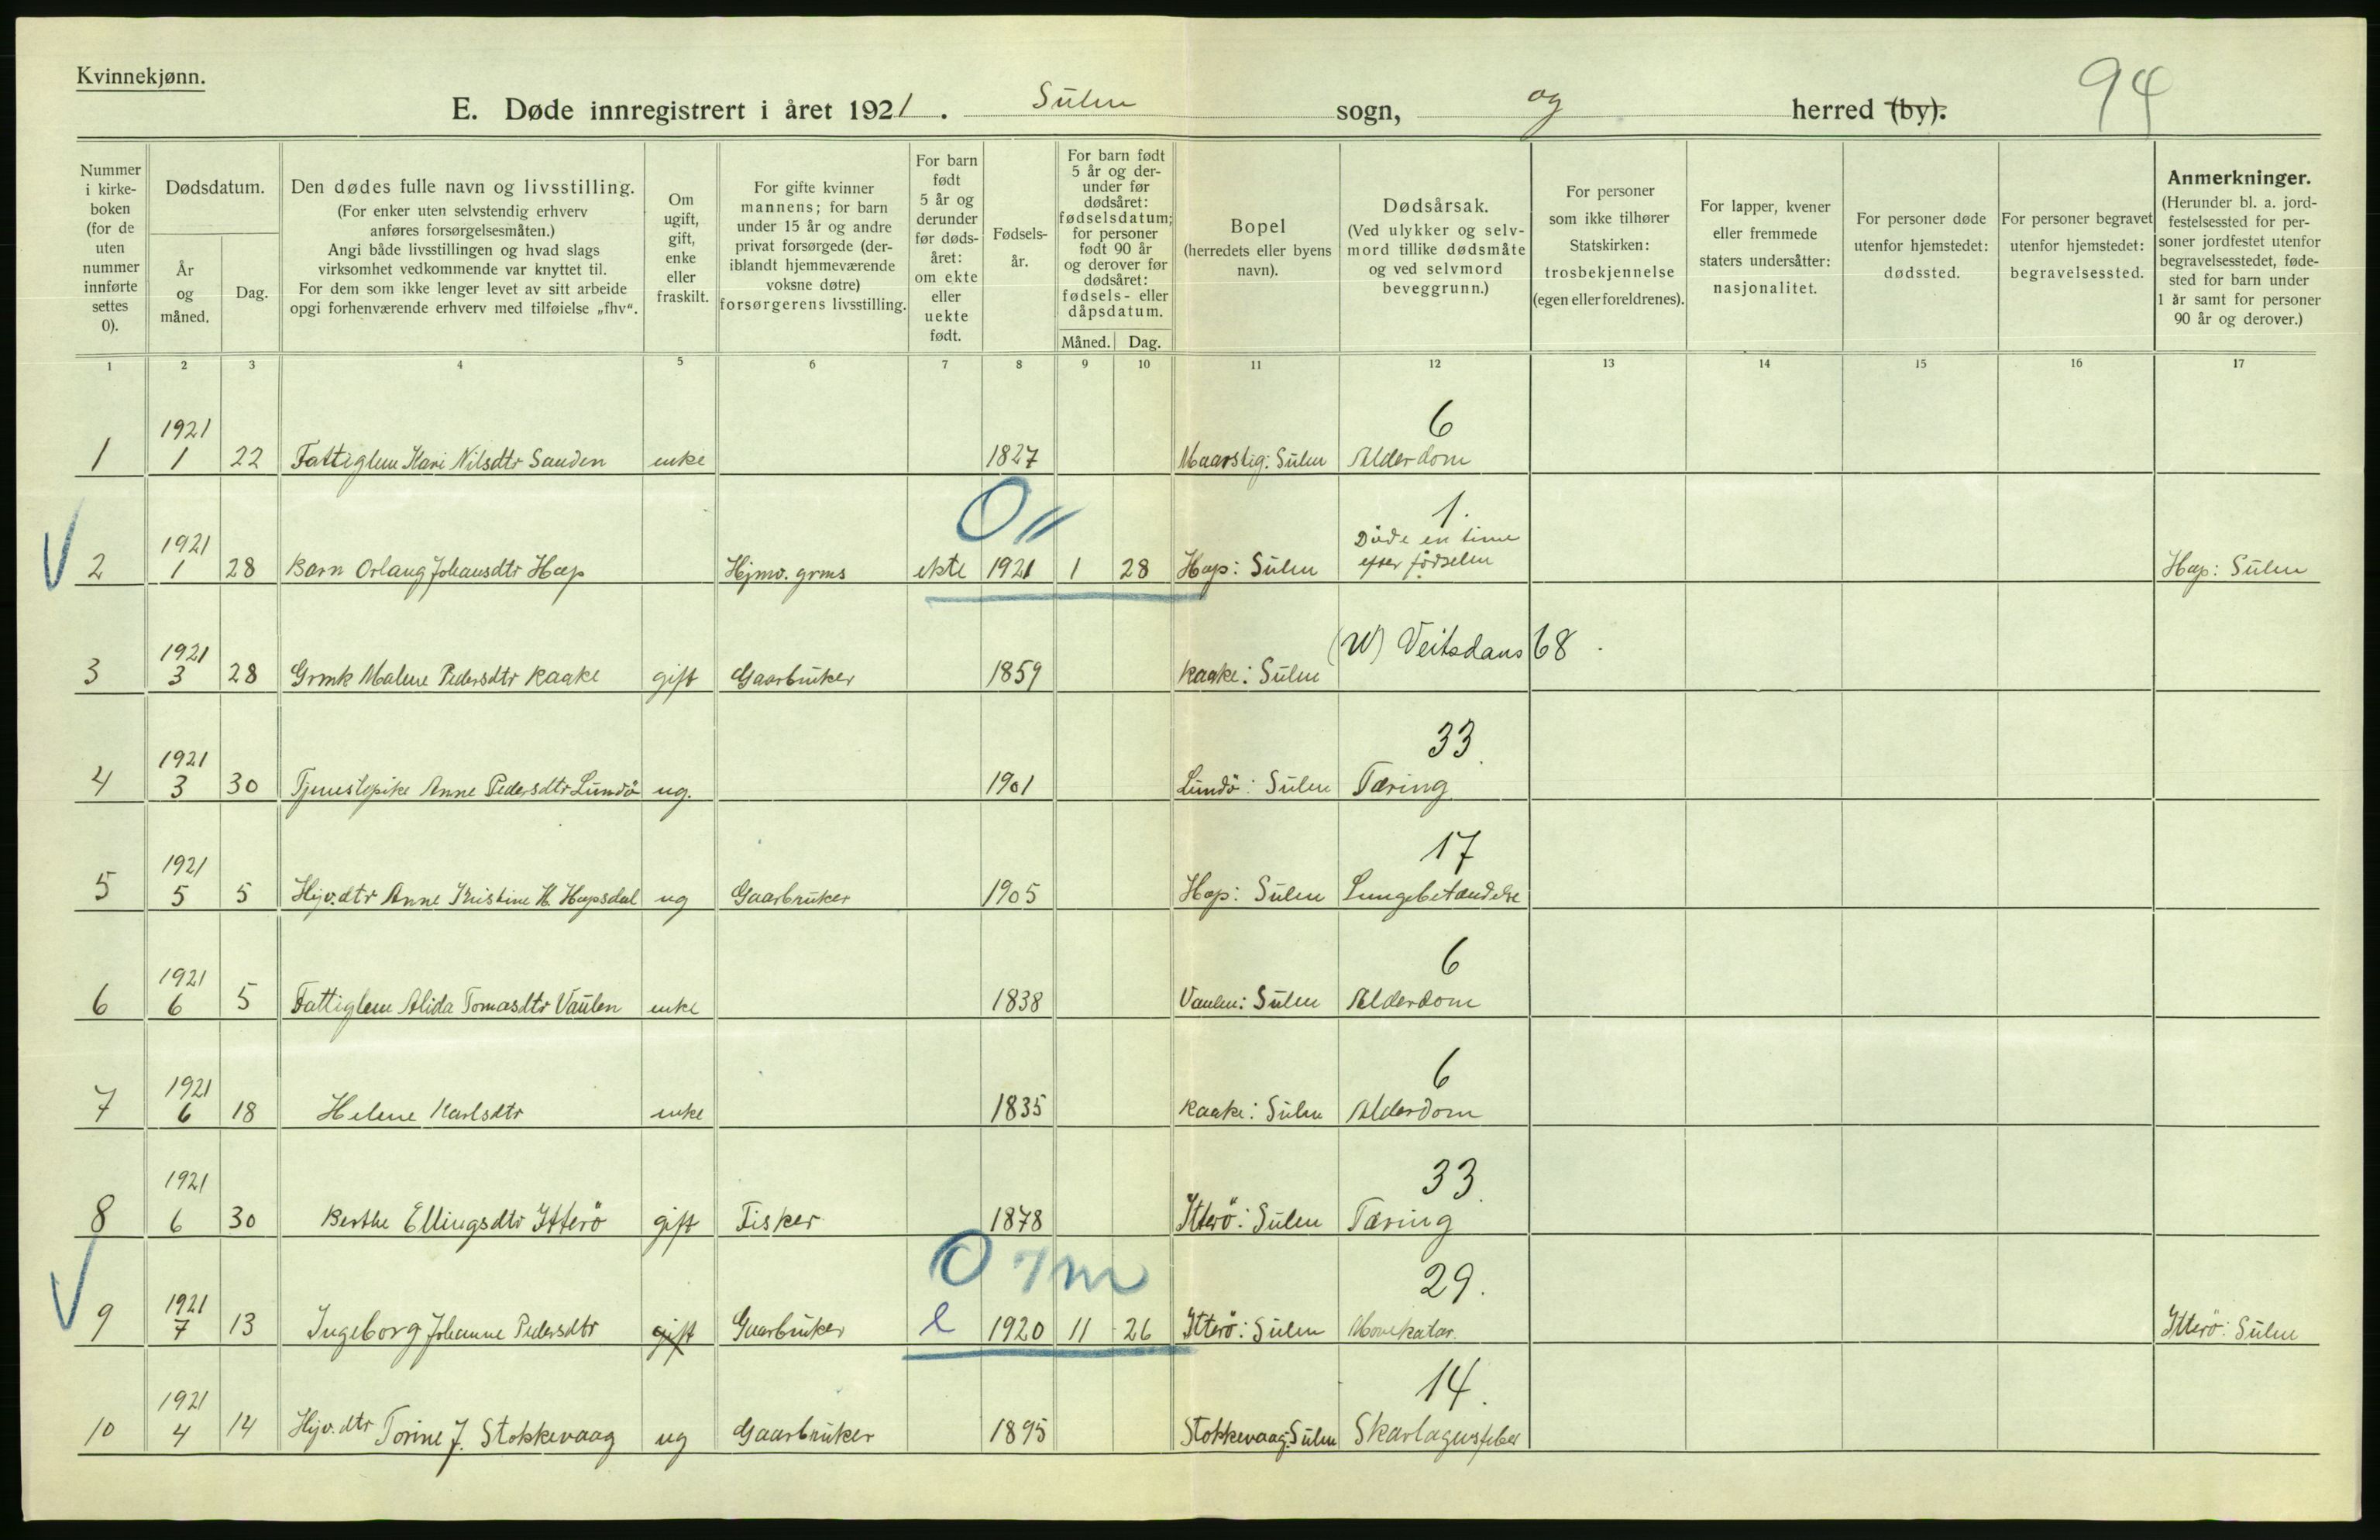 Kvinnekjønn.
94
E. Døde innregistrert i året 1921. Sulen sogn, og herred (by).
Nummer i kirke-boken (for de uten nummer innførte settes 0).
Dødsdatum.
År og måned.
Dag.
Den dødes fulle navn og livsstilling.
(For enker uten selvstendig erhverv
anføres forsørgelsesmåten.)
Angi både livsstillingen og hvad slags
virksomhet vedkommende var knyttet til.
For dem som ikke lenger levet av sitt arbeide
opgi forhenværende erhverv med tilføielse „fhv“.
Om ugift, gift, enke eller fraskilt.
For gifte kvinner
mannens; for barn
under 15 år og andre
privat forsørgede (der-
iblandt hjemmeværende
voksne døtre)
forsørgerens livsstilling.
For barn født 5 år og derunder før døds-året: om ekte eller uekte født.
Fødsels-år.
For barn født
5 år og der-
under før
dødsåret:
fødselsdatum;
for personer
født 90 år
og derover før
dødsåret:
fødsels- eller
dåpsdatum.
Måned. Dag.
Bopel
(herredets eller byens
navn).
Dødsårsak.
(Ved ulykker og selv-
mord tillike dødsmåte
og ved selvmord
beveggrunn.)
For personer
som ikke tilhører
Statskirken:
trosbekjennelse
(egen eller foreldrenes).
For lapper, kvener
eller fremmede
staters undersåtter:
nasjonalitet.
For personer døde
utenfor hjemstedet:
dødssted.
For personer begravet
utenfor hjemstedet:
begravelsessted.
Anmerkninger.
(Herunder bl. a. jord-
festelsessted for per-
soner jordfestet utenfor
begravelsesstedet, føde-
sted for barn under
1 år samt for personer
90 år og derover.)
1 2 3 4 5 6 7 8 9 10 11 12 13 14 15 16 17
1921 6
1 1 22 Fattiglem Kari Nilsdtr Sanden enke 1827 Sulen Alderdom
0 1.
1921 Döde en time
2 1 28 Barn Orlaug Johansdtr Hop Hjmv. grms ekte 1921 1 28 Hop: Sulen efter födselen Hop: Sulen
1921 (W) Veitsdans 68
3 3 28 Grmk Malene Pedersdtr Kaake gift Gaarbruker 1859 Kaake: Sulen
1921 33
4 3 30 Tjenestepike Anne Pedersdtr Lundö ug. 1901 Lundö: Sulen Tæring
1921 17
5 5 5 Hjv.dtr Anne Kristine H. Hopsdal ug Gaarbruker 1905 Hop: Sulen Lungebetændelse
1921 6
6 6 5 Fattiglem Alida Tomasdtr Vaulen enke 1838 Vaulen: Sulen Alderdom
1921 6
7 6 18 Helene Karlsdtr enke 1835 Kaake: Sulen Alderdom
1921 33
8 6 30 Berthe Ellingsdtr Ytterö gift Fisker 1878 Ytterö: Sulen Tæring
0 7m 29.
1921
9 7 13 Ingeborg Johanne Pedersdtr gift Gaarbruker e 1920 11 26 Ytterö: Sulen Ytterö: Sulen
1921 14.
10 4 14 Hjv.dtr Torine J. Stokkevaag ug Gaarbruker 1895 Stokkevaag: Sulen Skarlagensfeber